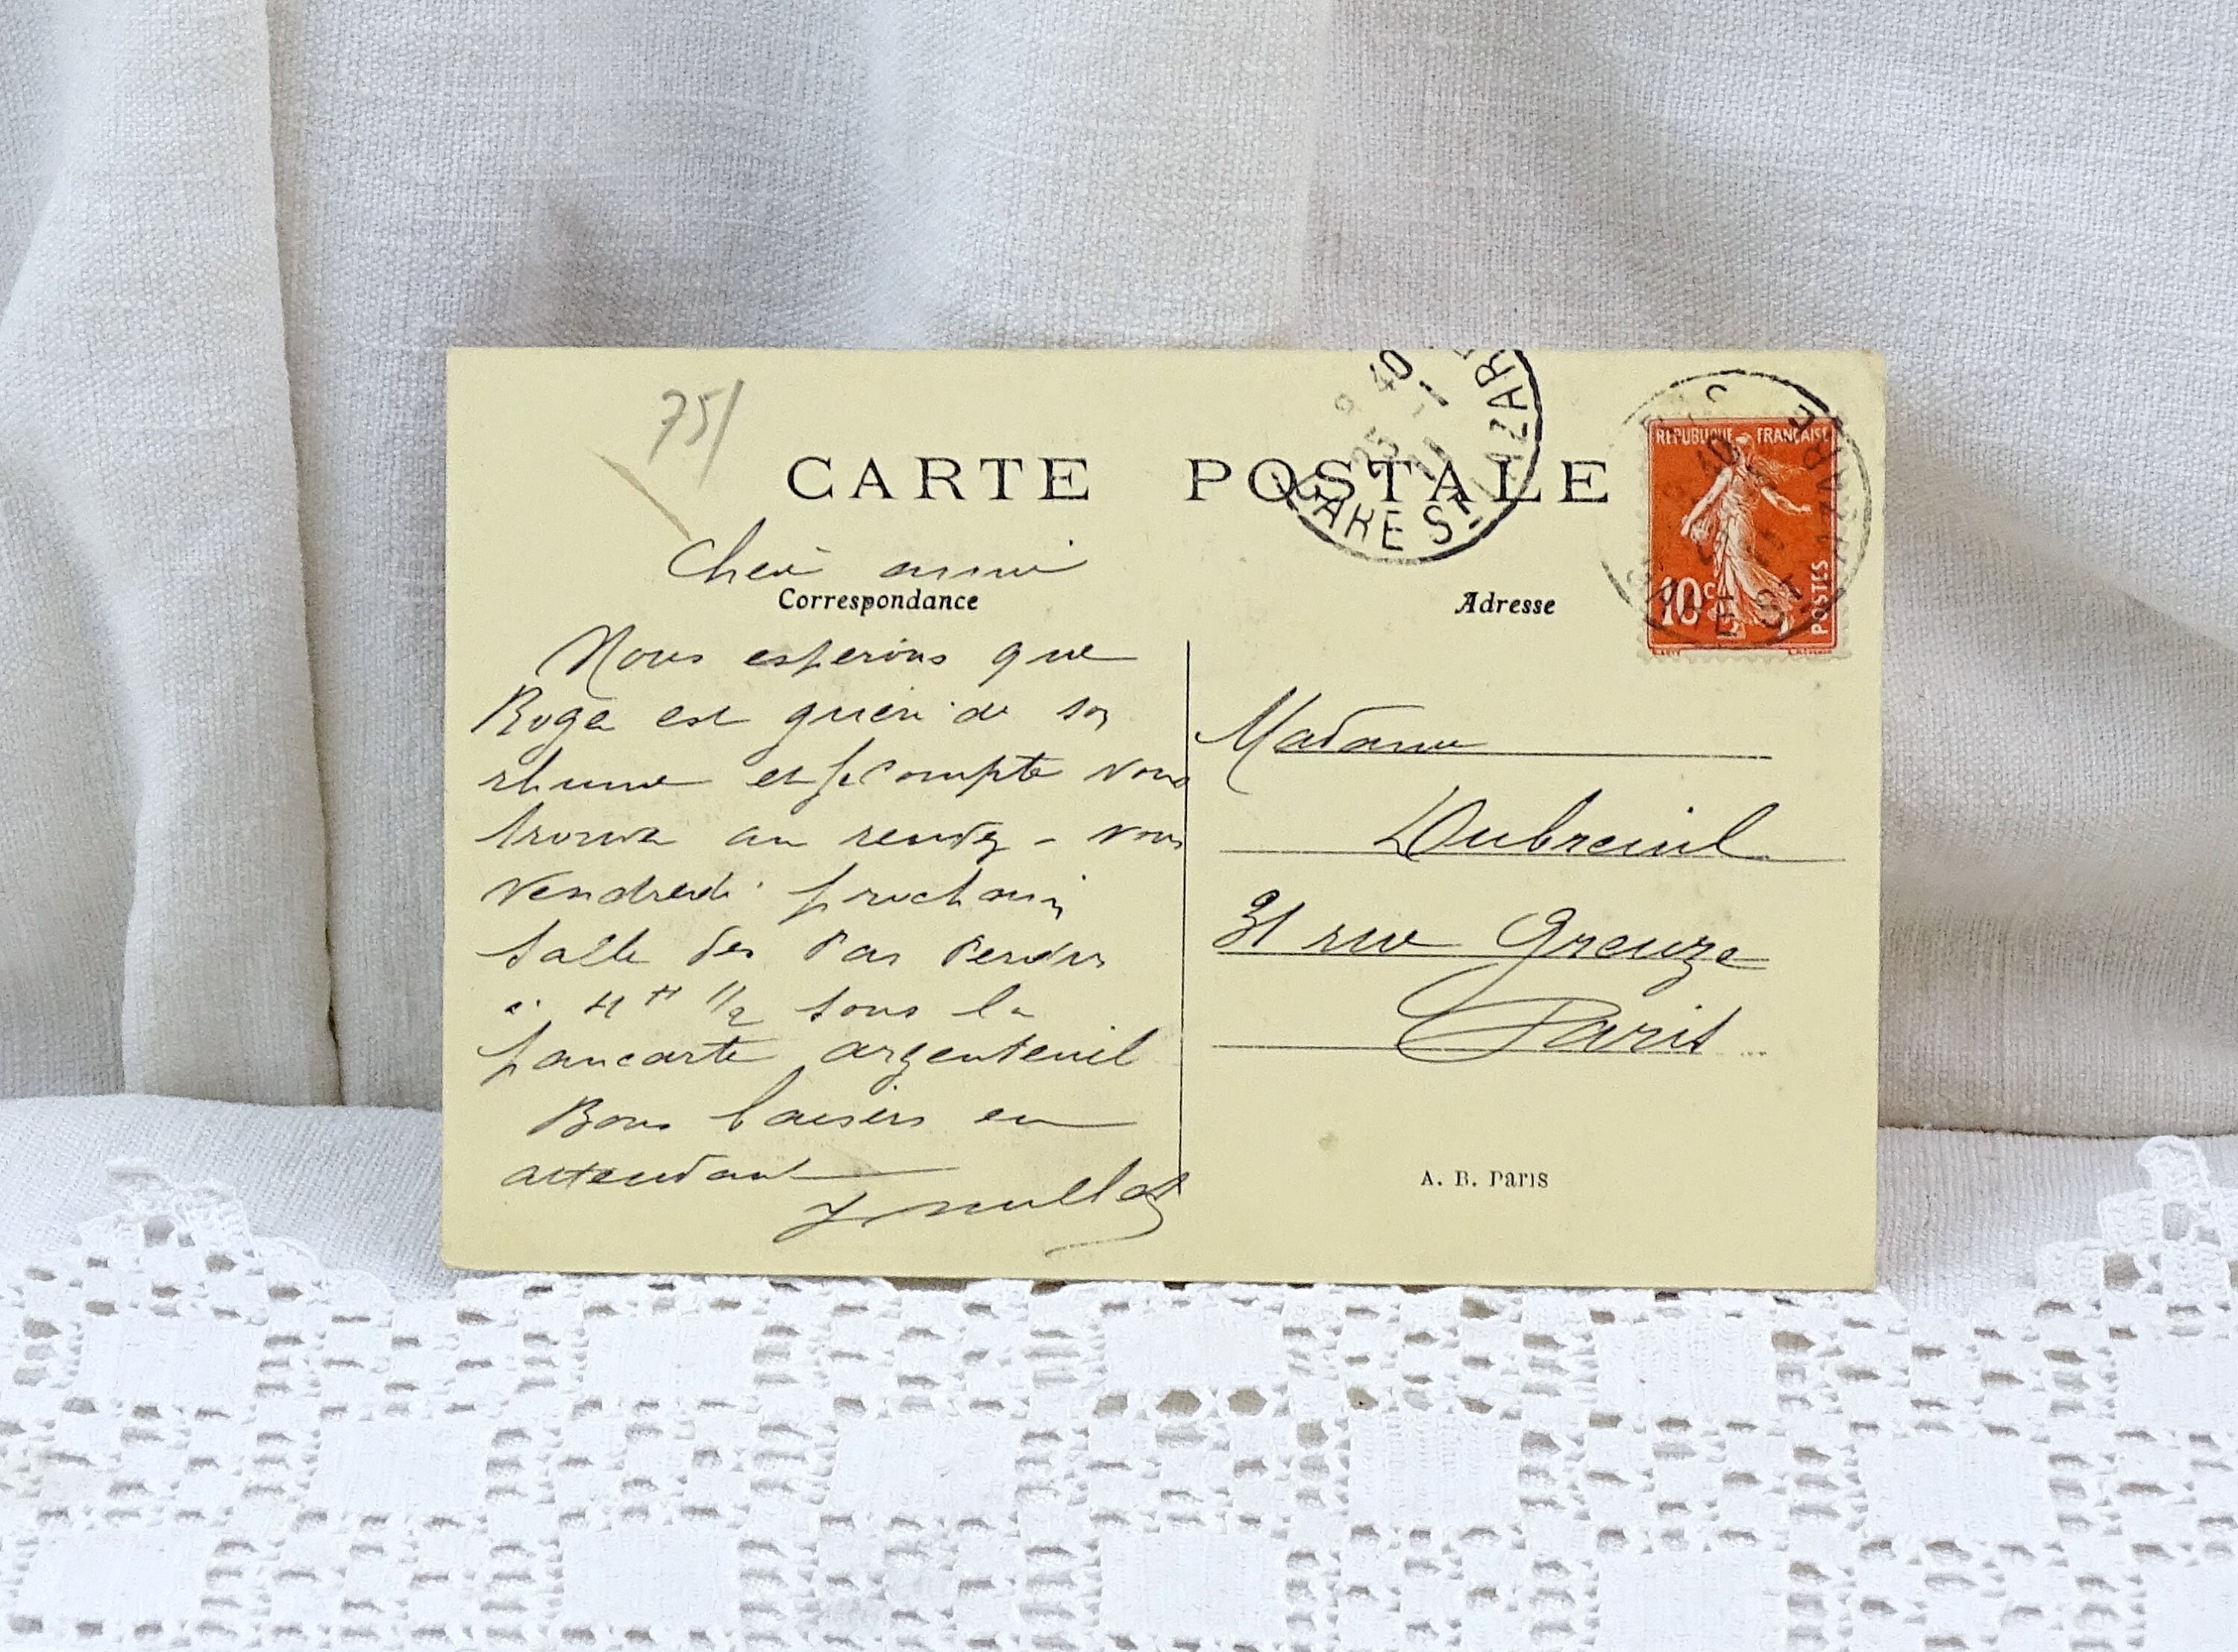 75/
CARTE POSTALE
9 40
25 -1
11
GARE ST LAZARE
REPUBLIQUE FRANÇAISE
10c
POSTES
GARE ST LAZARE
Chère amie
Correspondance
Adresse
Nous esperons que
Roger est guéri de son
rhume et je compte vous
trouver au rendez-vous
Vendredi prochain
Salle des Pas Perdus
à 4H 1/2 sous la
pancarte argenteuil
Bons baisers en
attendant
Madame
Dubreuil
31 rue Greuze
Paris
A. B. Paris